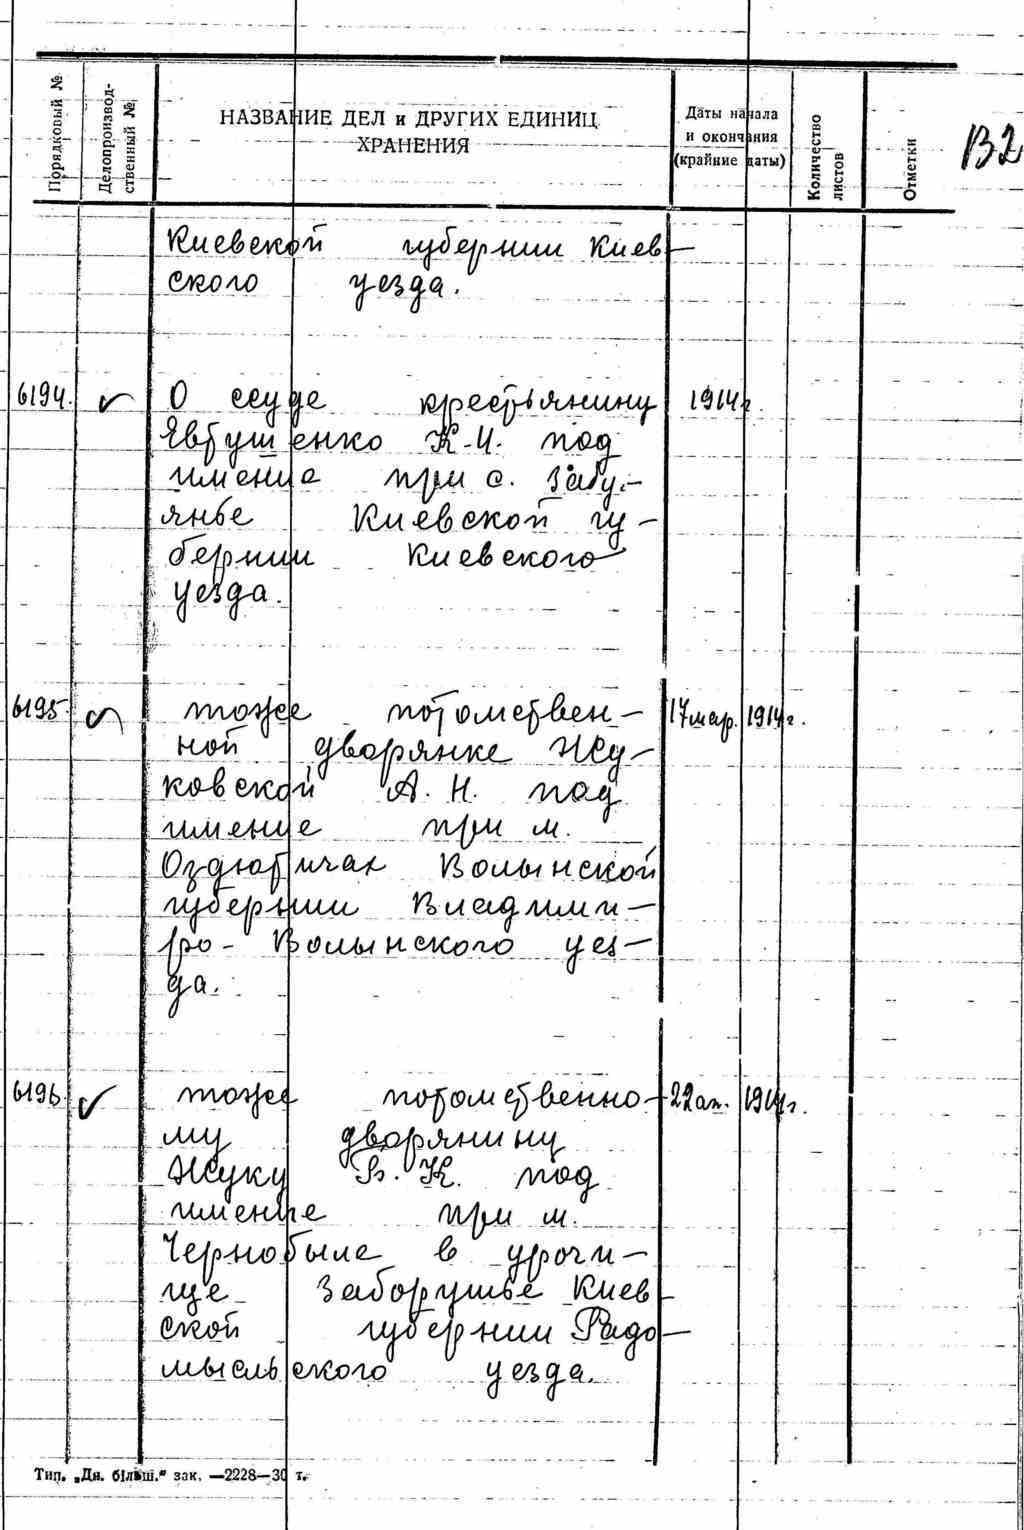 Порядковый №
Делопроизвод-
ственный №
НАЗВАНИЕ ДЕЛ и ДРУГИХ ЕДИНИЦ
ХРАНЕНИЯ
Даты начала
и окончания
(крайние даты)
Количество
листов
Отметки
132
Киевской губернии Киев-
ского уезда.
6194. О ссуде крестьянину 1914г.
Евтушенко К.И. под
имение при с. Забу-
янье Киевской гу-
бернии Киевского
уезда.
6195. тоже потомствен- 17 мар. 1914г.
ной дворянке Жу-
ковской А. Н. под
имение при м.
Оздютичах Волынской
губернии Владими-
ро-Волынского уез-
да.
6196. тоже потомственно- 22 ап. 1914г.
му дворянину
Жуку В. К. под
имение при м.
Чернобыле в урочи-
ще Заборушье Киев-
ской губернии Радо-
мысльского уезда.
Тип. „Дн. більш.“ зак. —2228—30 т.